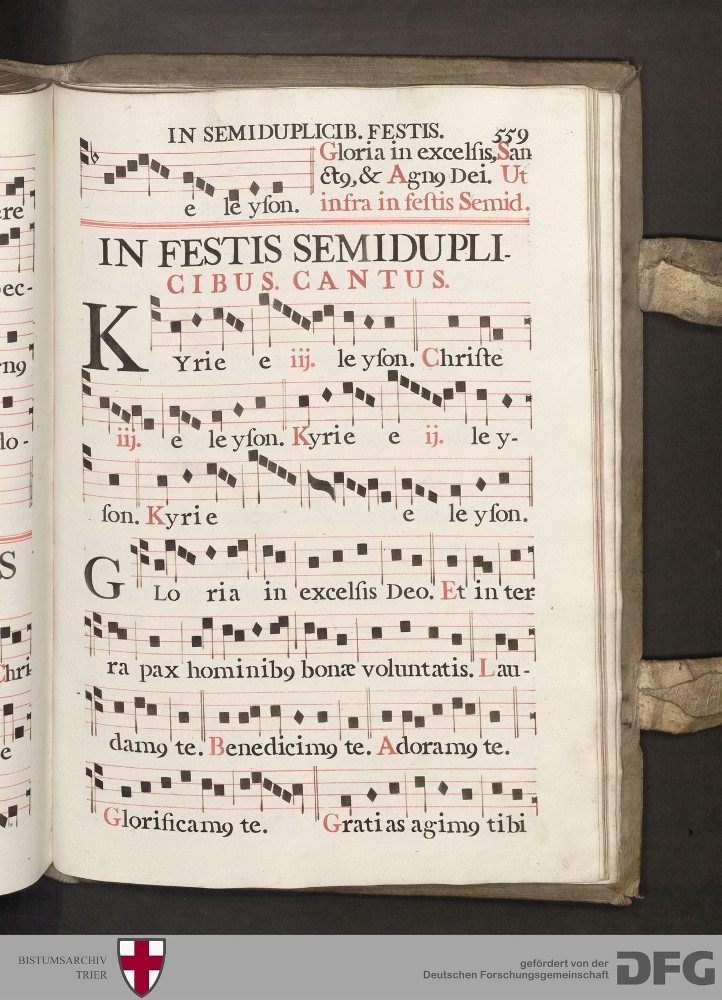 IN SEMIDUPLICIB. FESTIS. 559
Gloria in excelsis, San
ctꝯ, & Agnꝯ Dei. Ut
e le yson. infra in festis Semid.
IN FESTIS SEMIDUPLI-
CIBUS. CANTUS.
KYrie e iij. le yson. Christe
iij. e le yson. Kyrie e ij. le y-
son. Kyrie e le yson.
GLo ria in excelsis Deo. Et in ter
ra pax hominibꝯ bonæ voluntatis. Lau-
damꝯ te. Benedicimꝯ te. Adoramꝯ te.
Glorificamꝯ te. Gratias agimꝯ tibi
ere
ec-
rnꝯ
lo-
S
Chri
e
BISTUMSARCHIV
TRIER
gefördert von der
Deutschen Forschungsgemeinschaft
DFG